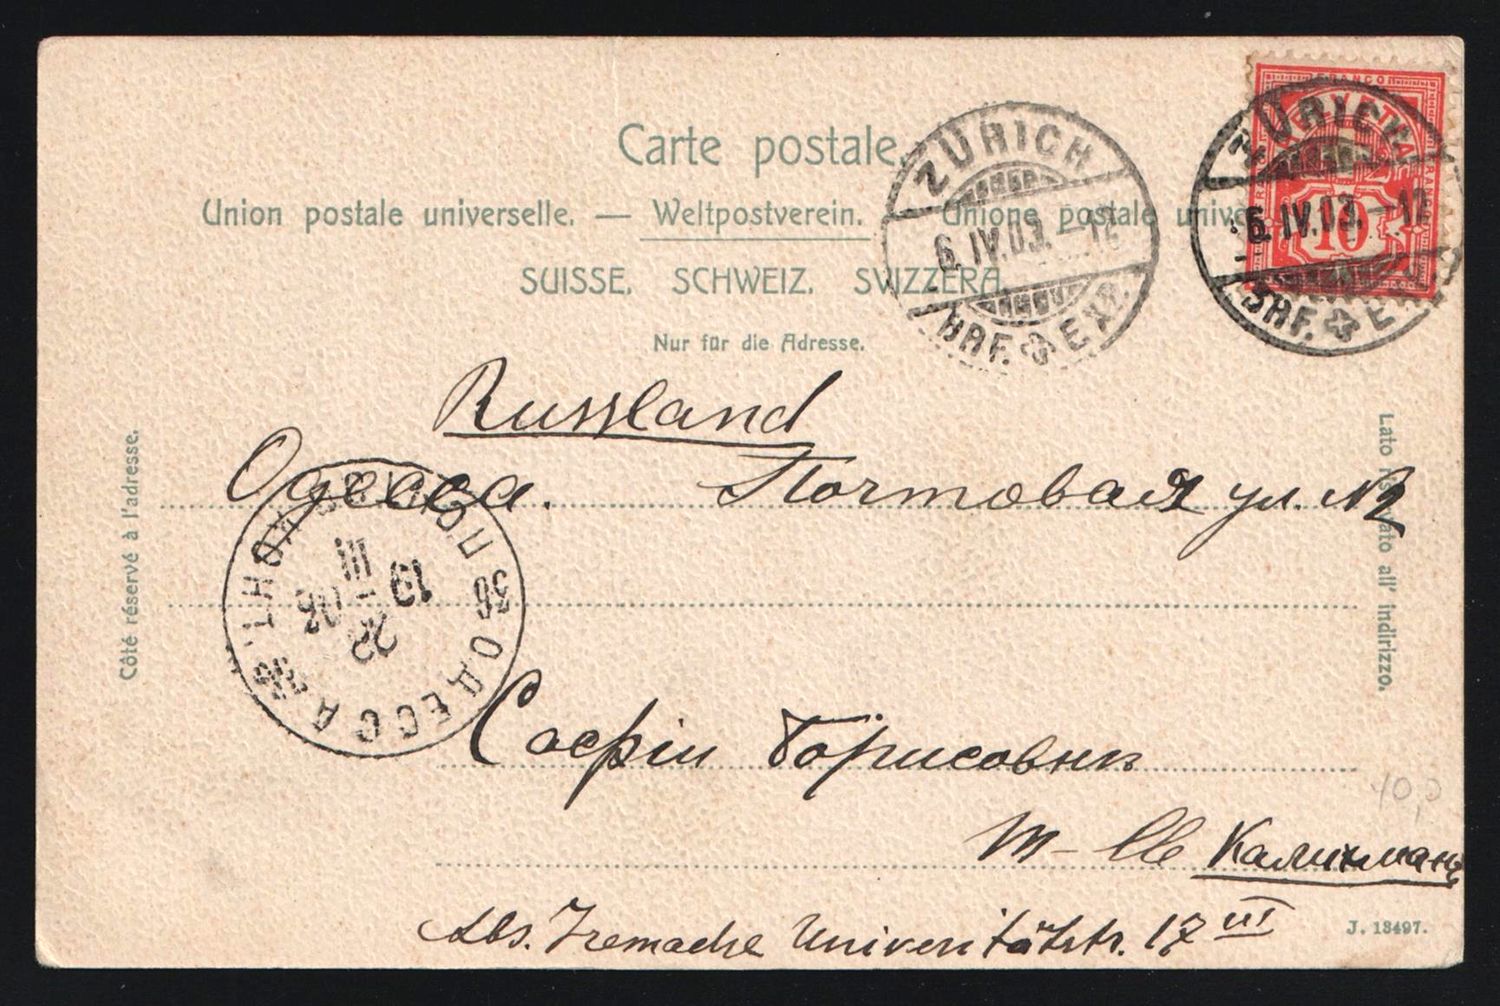 Carte postale.
Union postale universelle. — Weltpostverein. — Unione postale unive
SUISSE. SCHWEIZ. SVIZZERA.
Nur für die Adresse.
ZÜRICH
6. IV. 03. —12
BRF. EXP.
FRANCO
ZÜRICH
6. IV. 03. —12
BRF. E
10
Russland
Одесса. Почтовая ул. №
ОДЕССА
19 03
III
22
Софіи Борисовны
M-lle Калихманъ
Abs. Universitätstr. 17 III
Côté réservé à l'adresse.
Lato riservato all' indirizzo.
40,0
J. 18497.